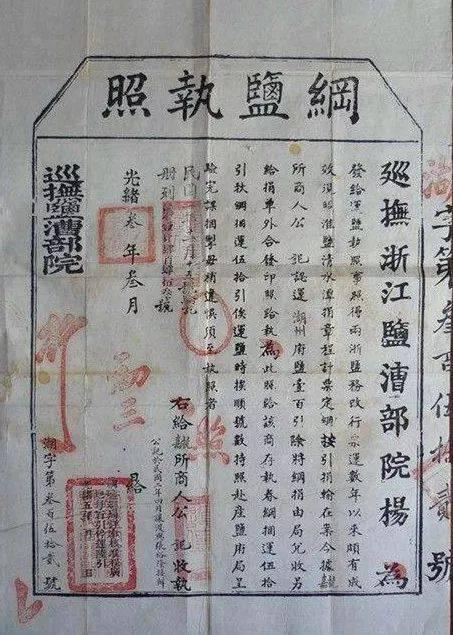 綱鹽執照
湖字第叁百伍拾貳號
巡撫浙江鹽漕部院楊 為
發給運鹽執照事照得兩浙鹽務改行票運數年以來頗有成
效現照淮鹽清水潭捐章程計票定綱按引捐輸在案今據
所商人公 記認運湖州府鹽壹百引除將綱捐由局兌收另
給捐單外合發印照給執為此照給該商存執春綱捐運伍拾
引秋綱捐運伍拾引俟運鹽時挨順號數持照赴座鹽甪局呈
驗完課捆掣毋稍違悞須至執照者
右給 所商人公 記收執
公記於民國 年四月讓渡與張裕隆接辦
民國
光緒叁年叁月
巡撫鹽漕部院
湖字第叁百伍拾貳號